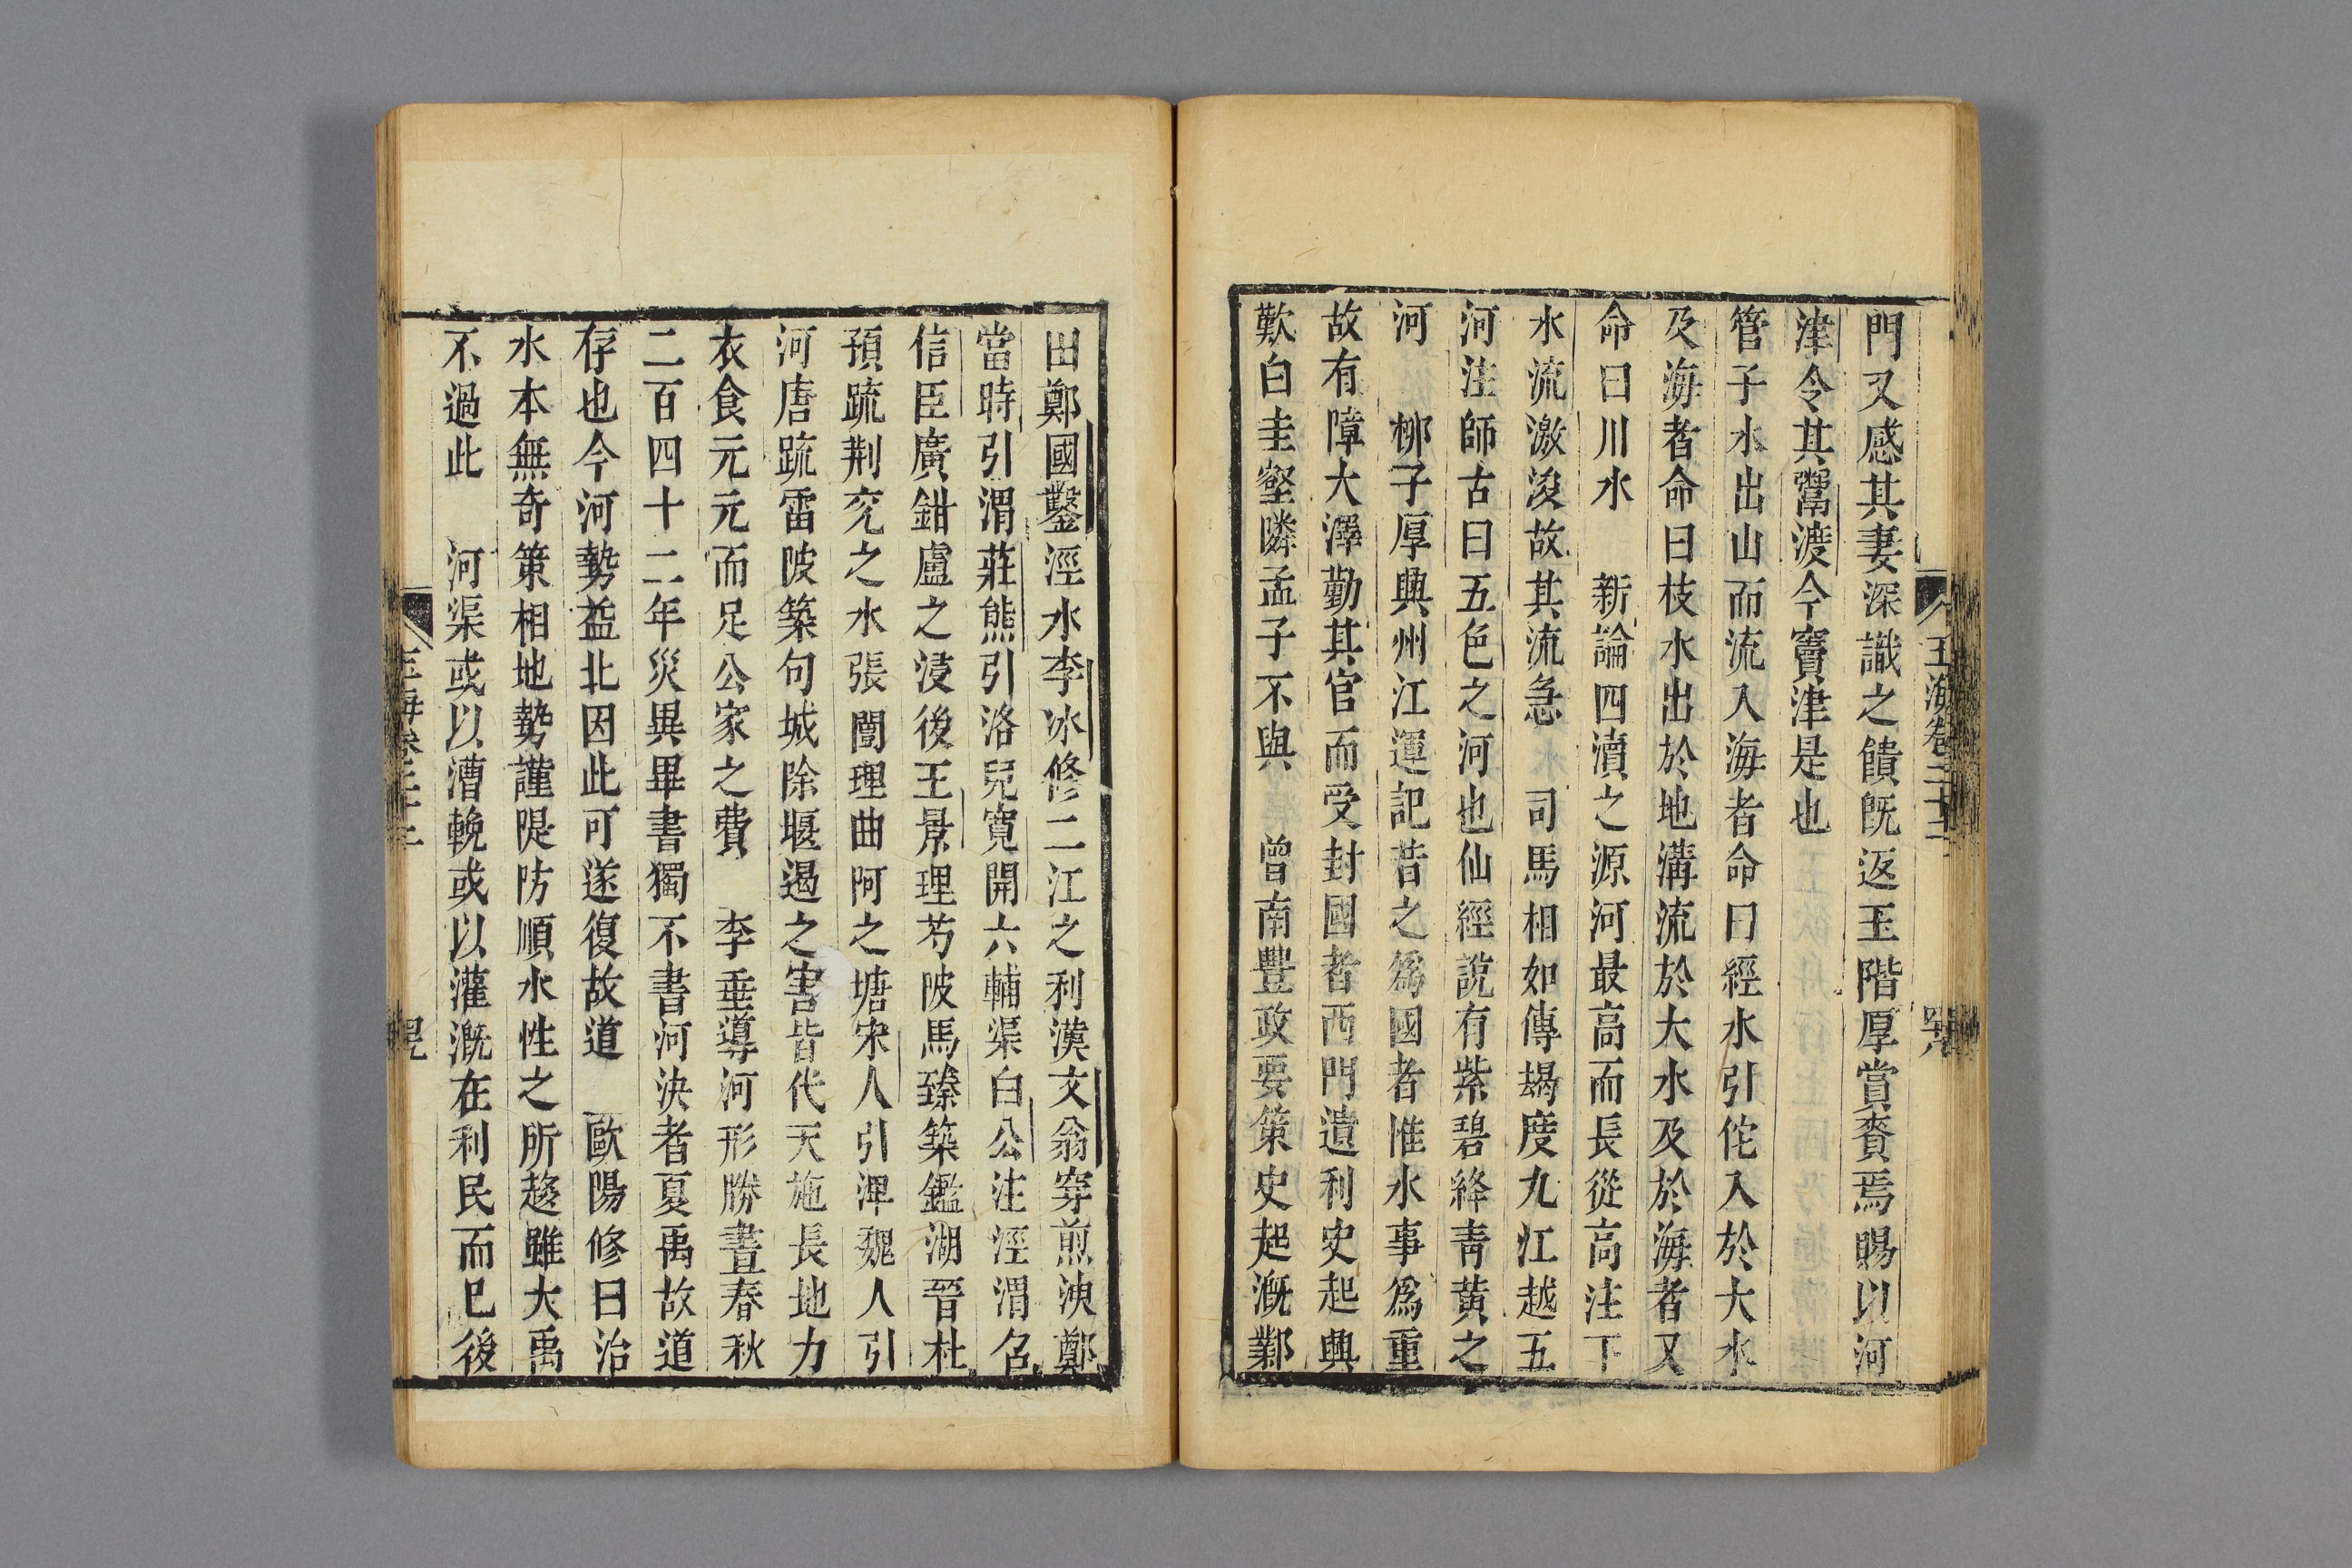 玉海卷二十二
門又感其妻深識之饋旣返玉階厚賞賚焉賜以河
津令其鬻渡今竇津是也
管子水出山而流入海者命曰經水引佗入於大水
及海者命曰枝水出於地溝流於大水及於海者又
命曰川水　新論四瀆之源河最高而長從高注下
水流激浚故其流急　司馬相如傳堨度九江越五
河注師古曰五色之河也仙經說有紫碧絳青黄之
河　栁子厚興州江運記昔之爲國者惟水事爲重
故有障大澤勤其官而受封國者西門遺利史起興
歎白圭壑隣孟子不與　曾南豐政要策史起溉鄴
田鄭國鑿涇水李冰修二江之利漢文翁穿煎㳛鄭
當時引渭莊熊引洛兒寛開六輔渠白公注涇渭召
信臣廣鉗盧之浸後王景理芍陂馬臻築鑑湖晉杜
預䟽荆兖之水張闓理曲阿之塘宋人引渒魏人引
河唐䟽雷陂築句城除堰遏之害皆代天施長地力
衣食元元而足公家之費　李垂導河形勝書春秋
二百四十二年災異畢書獨不書河決者夏禹故道
存也今河勢益北因此可遂復故道　歐陽修曰治
水本無奇策相地勢謹隄防順水性之所趍雖大禹
不過此　河渠或以漕輓或以灌溉在利民而已後
玉海卷二十二